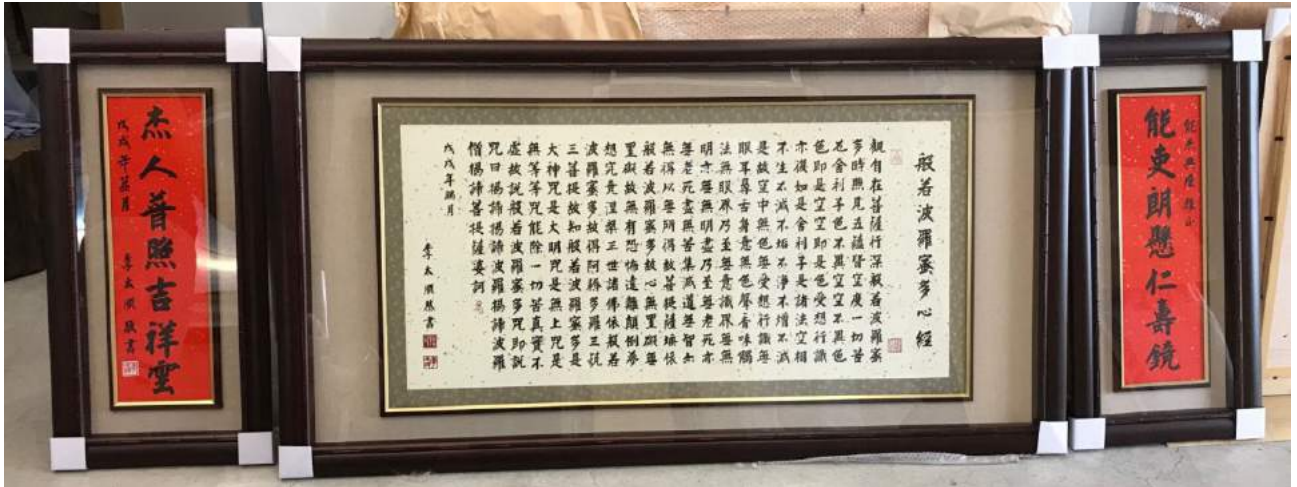 能吏朗懸仁壽鏡
般若波羅蜜多心經
觀自在菩薩行深般若波羅蜜
多時照見五蘊皆空度一切苦
厄舍利子色不異空空不異色
色即是空空即是色受想行識
亦復如是舍利子是諸法空相
不生不滅不垢不淨不增不減
是故空中無色無受想行識無
眼耳鼻舌身意無色聲香味觸
法無眼界乃至無意識界無無
明亦無無明盡乃至無老死亦
無老死盡無苦集滅道無智亦
無得以無所得故菩提薩埵依
般若波羅蜜多故心無罣礙無
罣礙故無有恐怖遠離顛倒夢
想究竟涅槃三世諸佛依般若
波羅蜜多故得阿耨多羅三藐
三菩提故知般若波羅蜜多是
大神咒是大明咒是無上咒是
無等等咒能除一切苦真實不
虛故說般若波羅蜜多咒即說
咒曰揭諦揭諦波羅揭諦波羅
僧揭諦菩提薩婆訶
戊戌年臘月
李太順恭書
杰人普照吉祥雲
李太順敬書